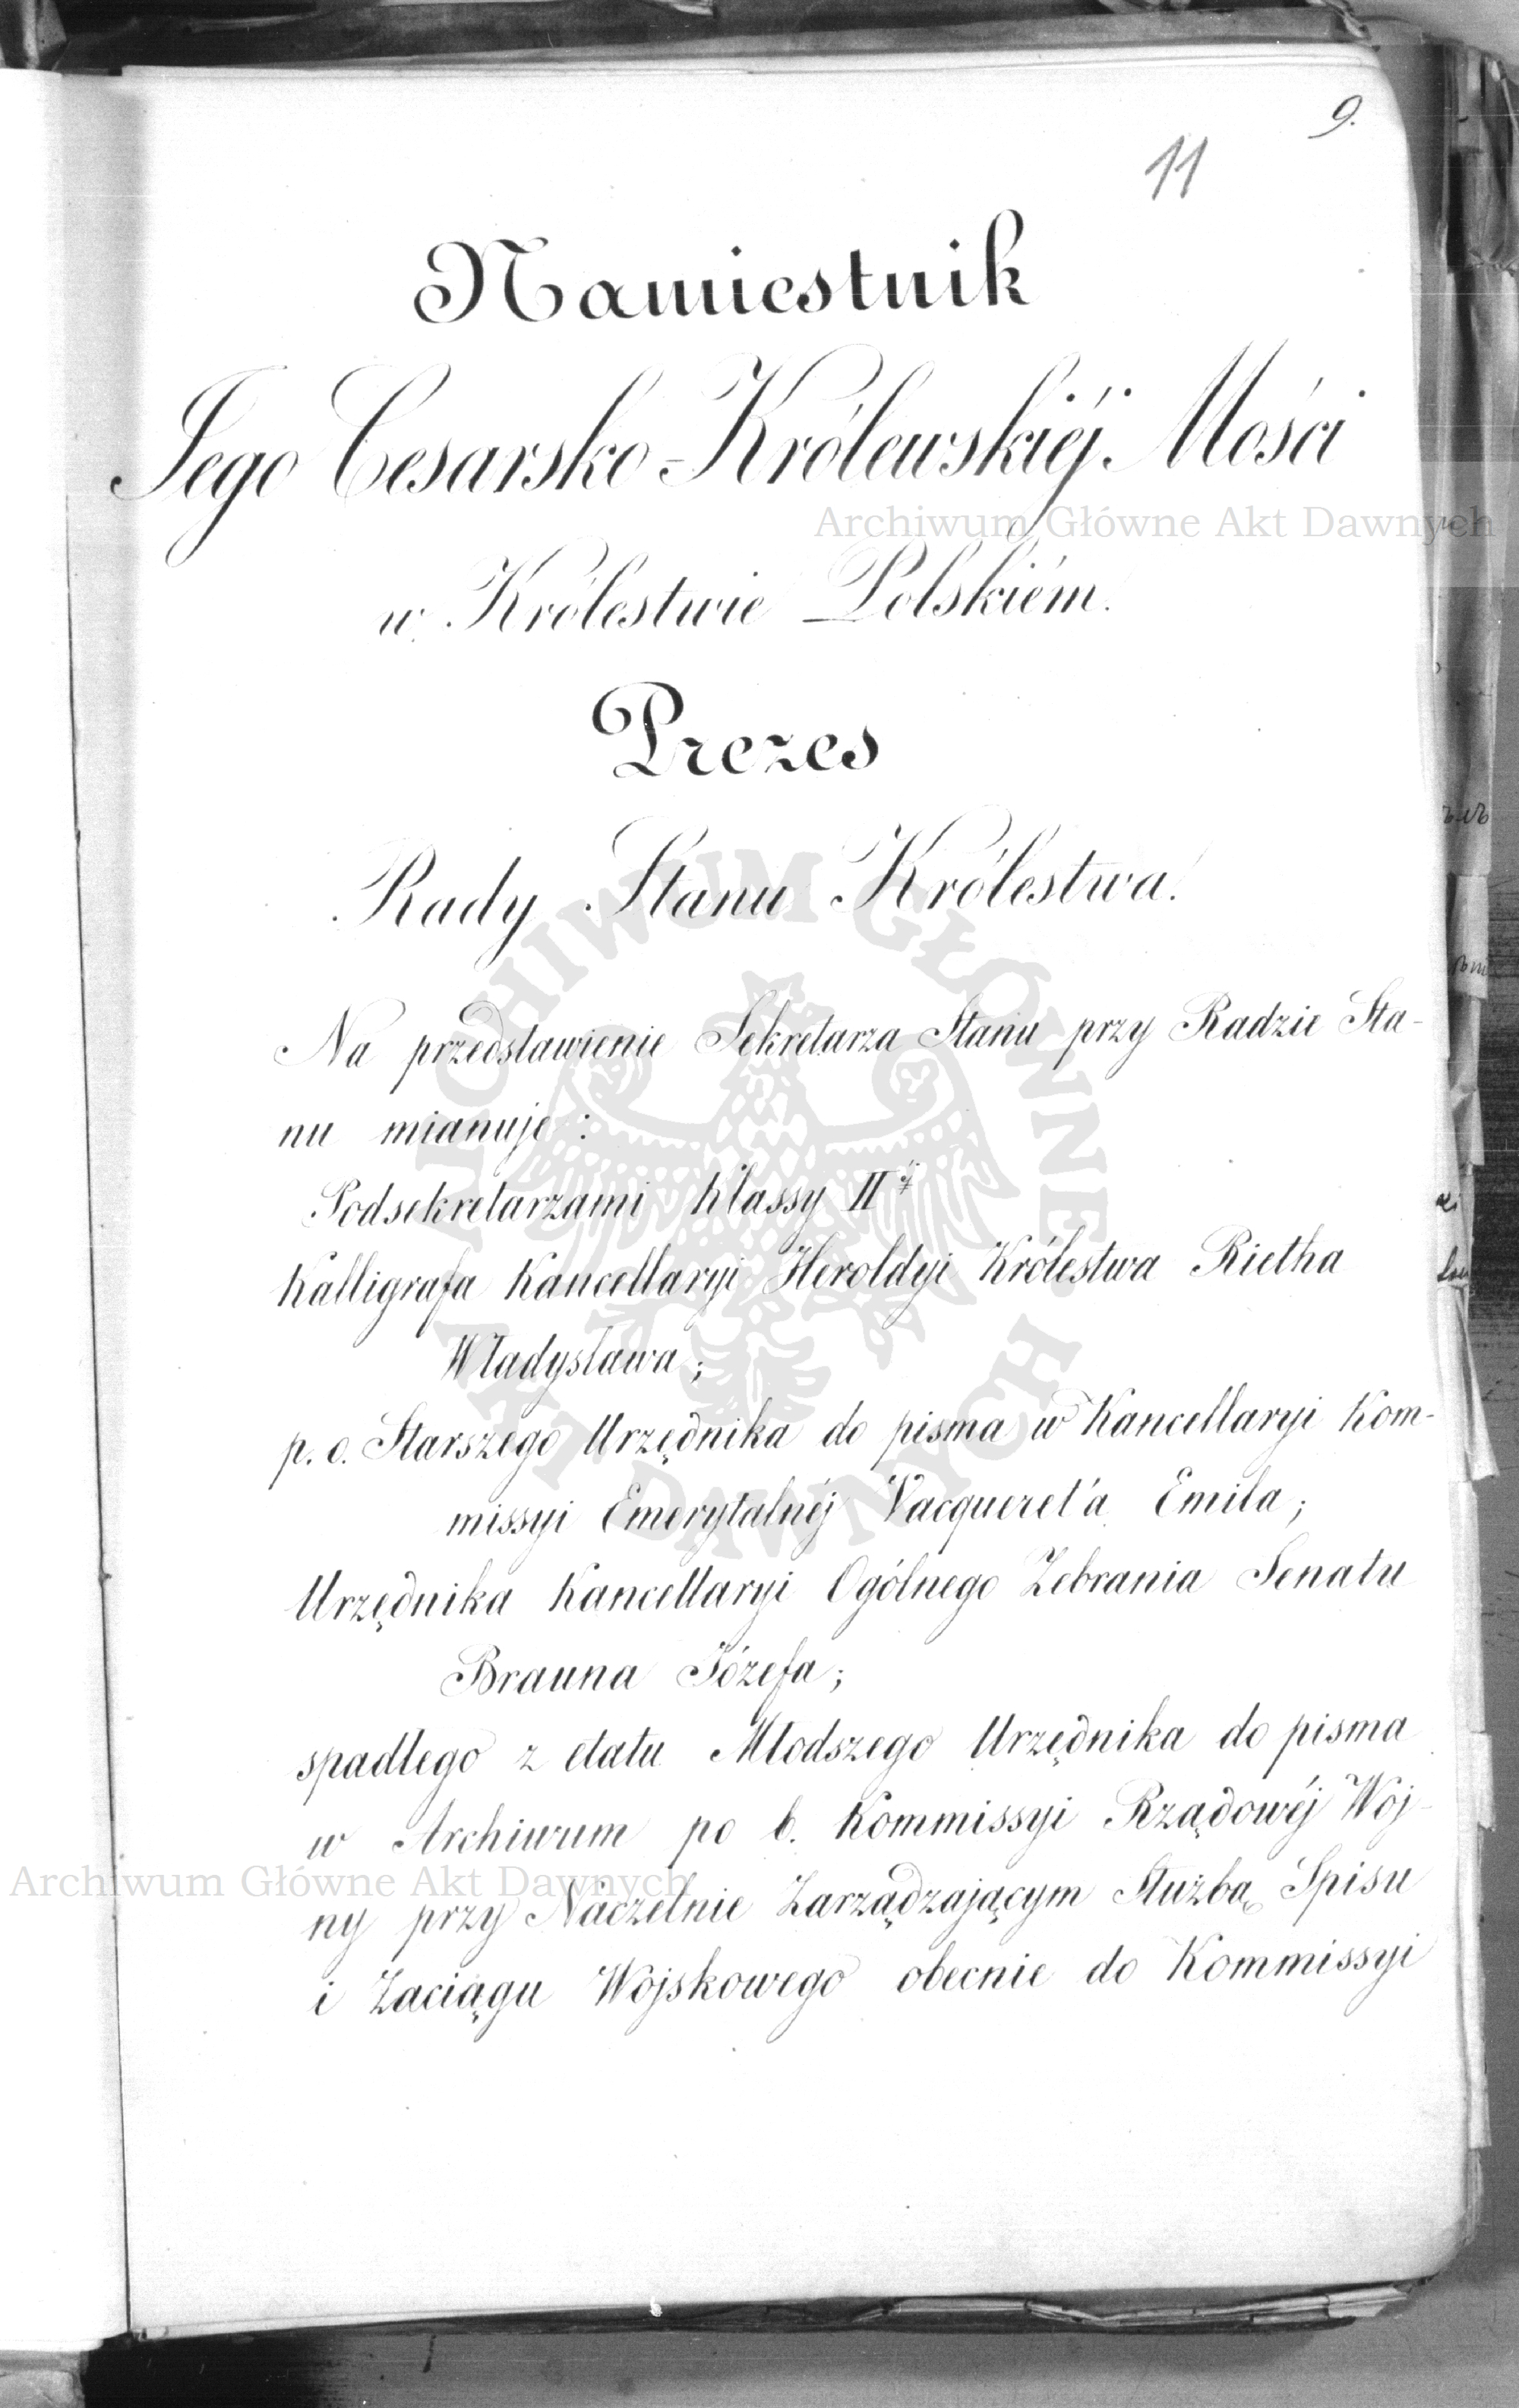 9.
11
Namiestnik
Jego Cesarsko-Królewskiéj Mości
Archiwum Główne Akt Dawnych
w Królestwie Polskiém.
Prezes
Rady Stanu Królestwa.
ARCHIWUM GŁÓWNE AKT DAWNYCH
Na przedstawienie Sekretarza Stanu przy Radzie Sta-
nu mianuje:
Podsekretarzami klassy IIéj
Kalligrafa Kancellaryi Heroldyi Królestwa Rietha
Władysława;
p. o. Starszego Urzędnika do pisma w Kancellaryi Kom-
missyi Emerytalnéj Vacqueret'a Emila;
Urzędnika Kancellaryi Ogólnego Zebrania Senatu
Brauna Józefa;
spadłego z etatu Młodszego Urzędnika do pisma
w Archiwum po b. Kommissyi Rządowéj Woj-
Archiwum Główne Akt Dawnych
ny przy Naczelnie Zarządzającym Służbą Spisu
i Zaciągu Wojskowego obecnie do Kommissyi